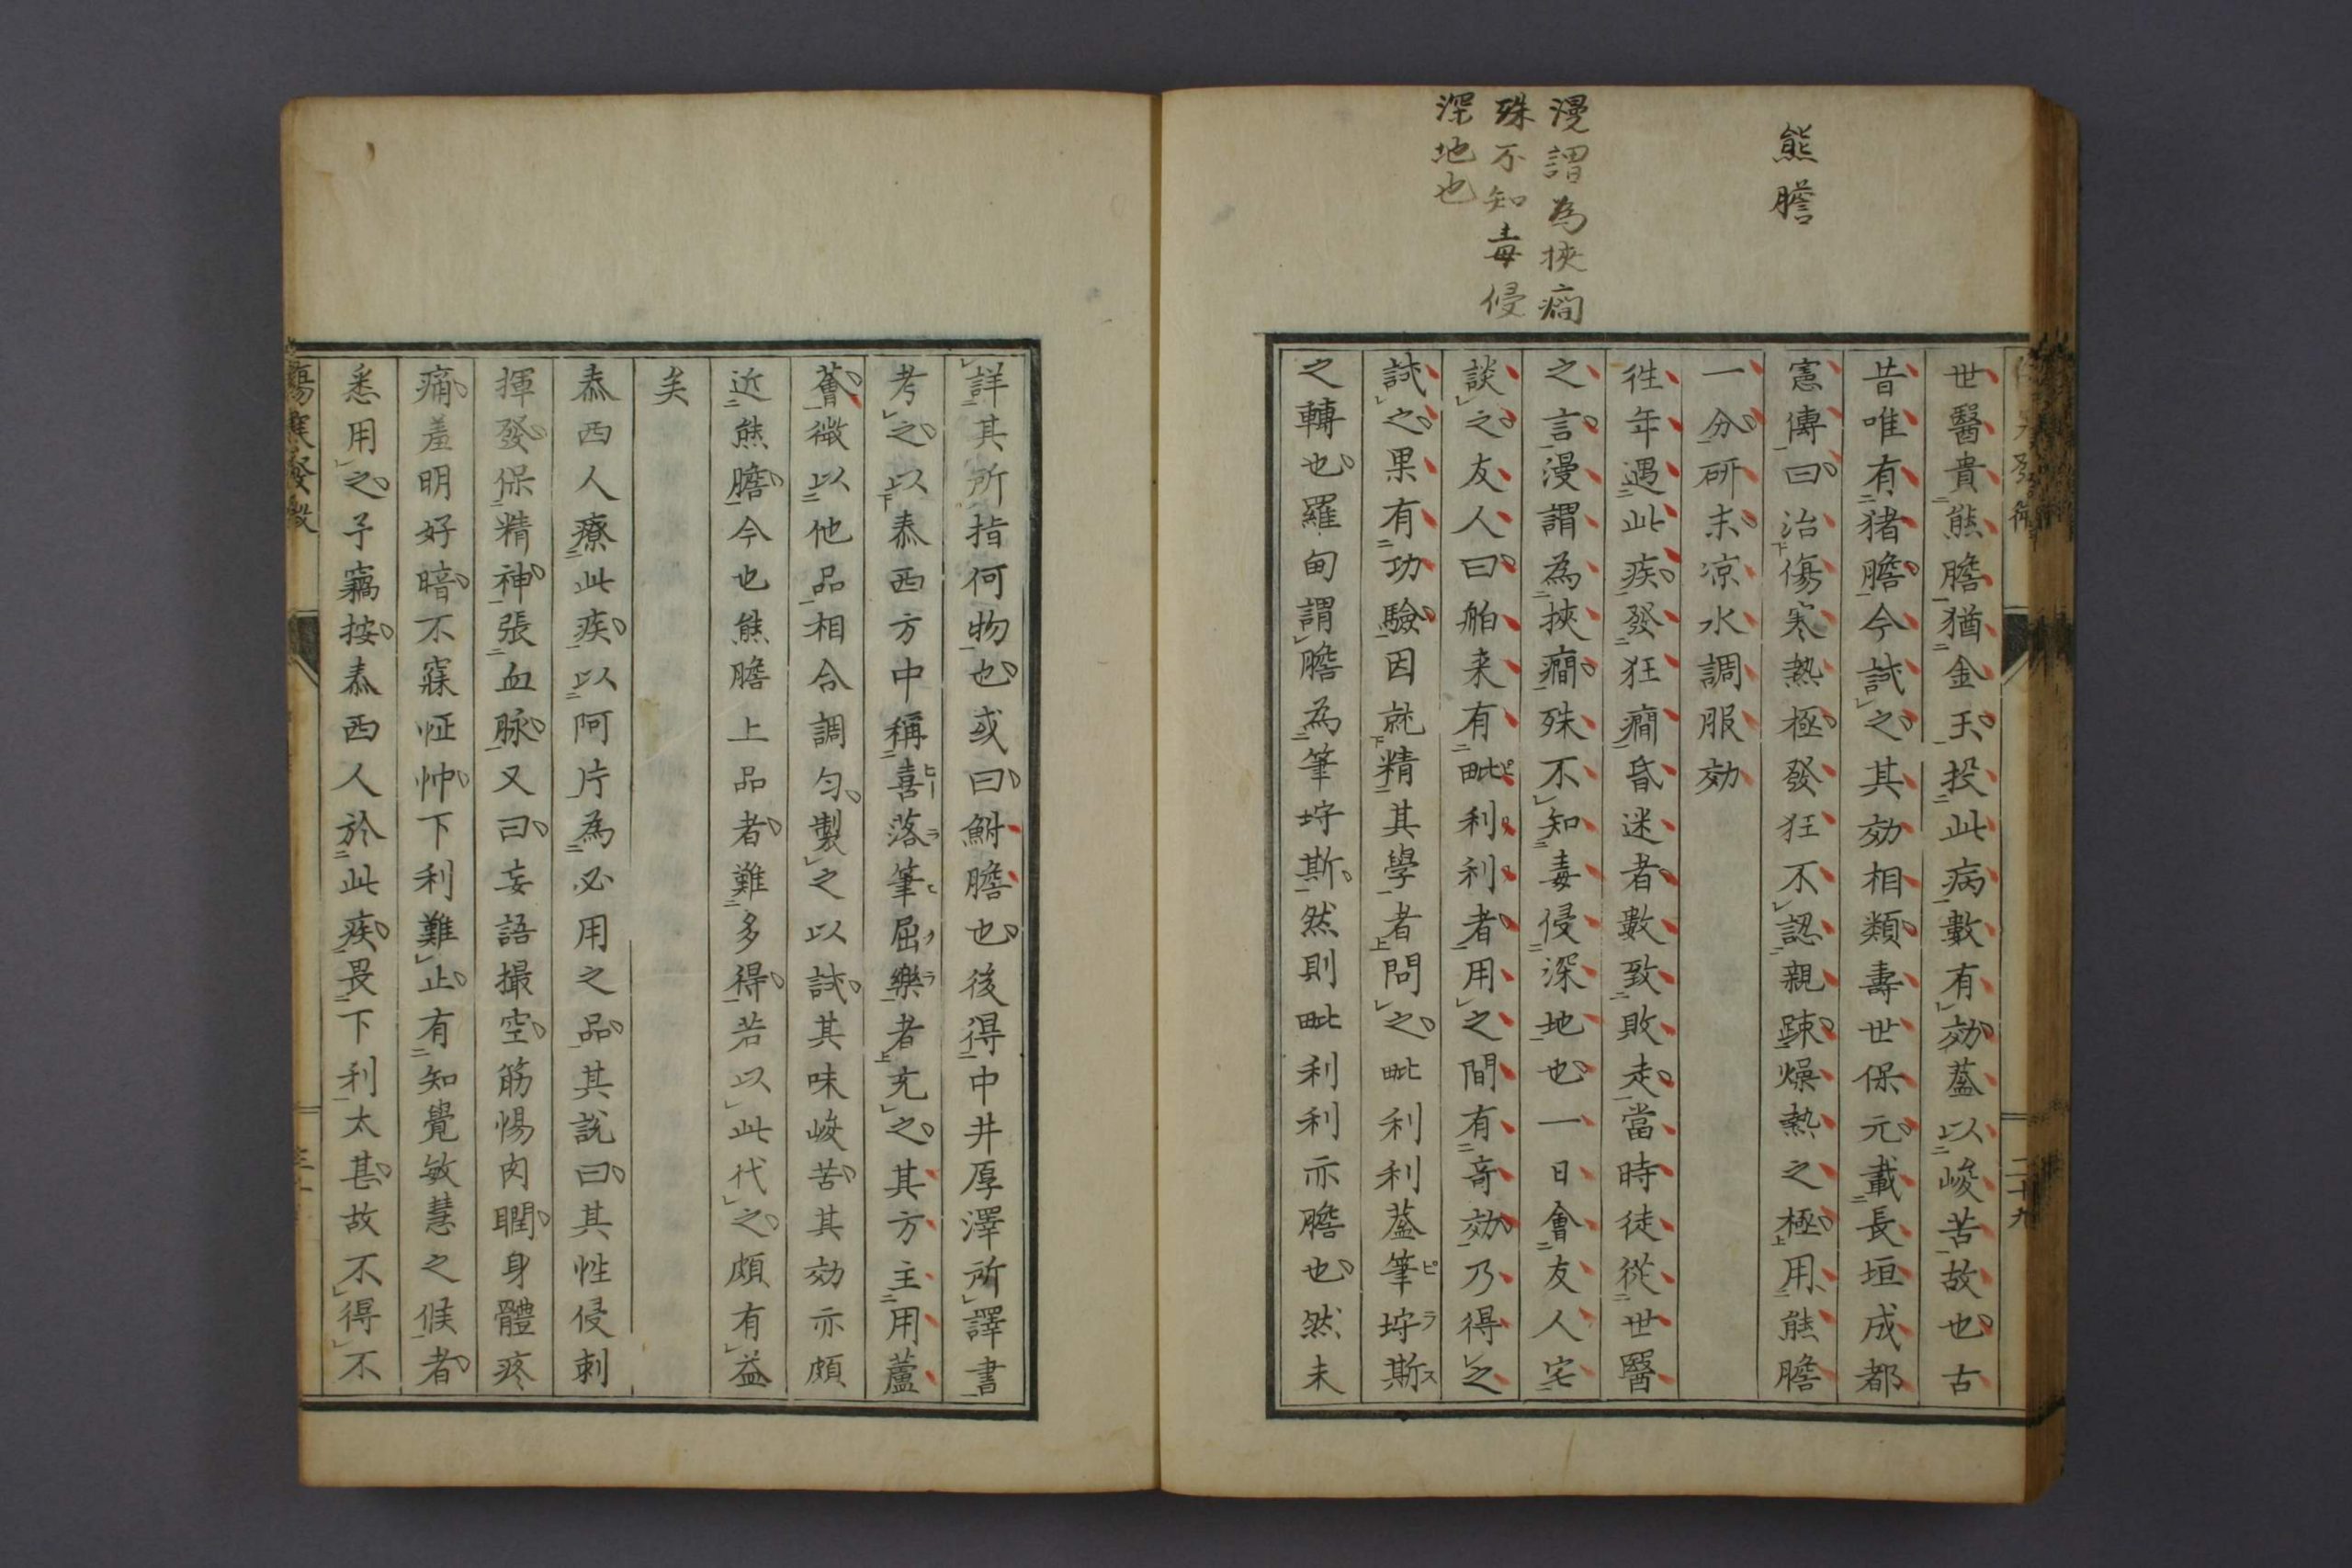 熊膽
漫謂為挾癇
殊不知毒侵
深地也
二十九
世醫貴熊膽猶金玉投此病數有効蓋以峻苦故也古
昔唯有猪膽今試之其効相類壽世保元載長垣成都
憲傳曰治傷寒熱極發狂不認親踈燥熱之極用熊膽
一分研末凉水調服効
徃年遇此疾發狂癇昏迷者數致敗走當時徒從世醫
之言漫謂為挾癇殊不知毒侵深地也一日會友人宅
談之友人曰舶来有毗利利者用之間有奇効乃得之
試之果有功驗因就精其學者問之毗利利蓋筆垨斯
之轉也羅甸謂膽為筆垨斯然則毗利利亦膽也然未
詳其所指何物也或曰鮒膽也後得中井厚澤所譯書
考之以泰西方中稱喜落筆屈樂者充之其方主用蘆
薈微以他品相合調匀製之以試其味峻苦其効亦頗
近熊膽今也熊膽上品者難多得若以此代之頗有益
矣
泰西人療此疾以阿片為必用之品其説曰其性侵刺
揮發保精神張血脉又曰妄語撮空筋惕肉瞤身體疼
痛羞明好暗不寐怔忡下利難止有知覺敏慧之候者
悉用之予竊按泰西人於此疾畏下利太甚故不得不